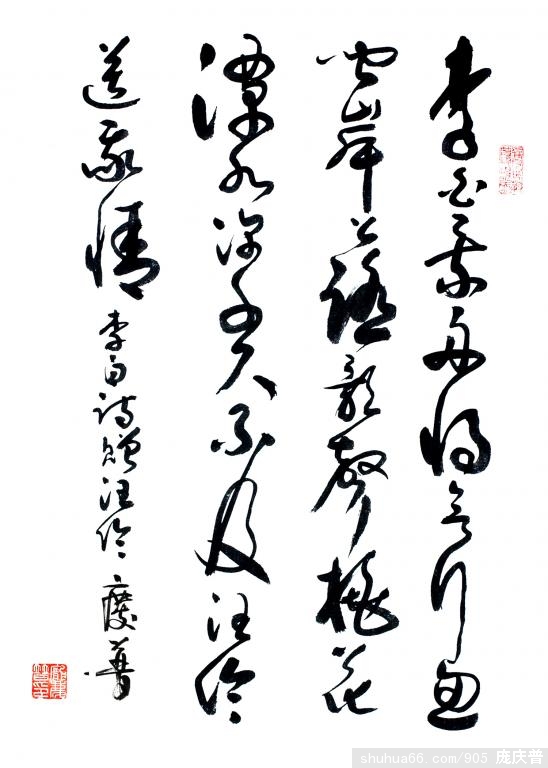 李白乘舟将欲行忽
闻岸上踏歌聲桃花
潭水深千尺不及汪伦
送我情 李白诗赠汪伦 慶普
shuhua66.com/905 庞庆普